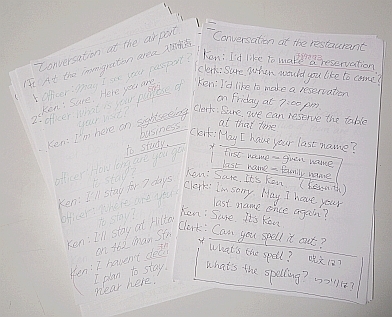 Conversation at the airport
At the immigration area
1: Officer: May I see your passport?
Ken: Sure. Here you are
2: officer: What's your purpose of
your visit?
Ken: I'm here on sightseeing
business
to study
officer: How long are you
Ken: I'll stay for 7 days
officer: Where are you
to stay?
Ken: I'll stay at Hilton
on the Main St
Ken: I haven't
I plan to stay
near here.
Conversation at the restaurant
Ken: I'd like to make a reservation
Clerk: Sure. When would you like to come?
Ken: I'd like to make a reservation
on Friday at 7:00 pm
Clerk: Sure, we can reserve the table
at that time
Clerk: May I have your last name?
* First name = given name
last name = family name
Ken: Sure. It's Ken
Clerk: I'm sorry. May I have your
last name once again?
Ken: Sure. It's Ken
Clerk: Can you spell it out?
* What's the spell?
What's the spelling?